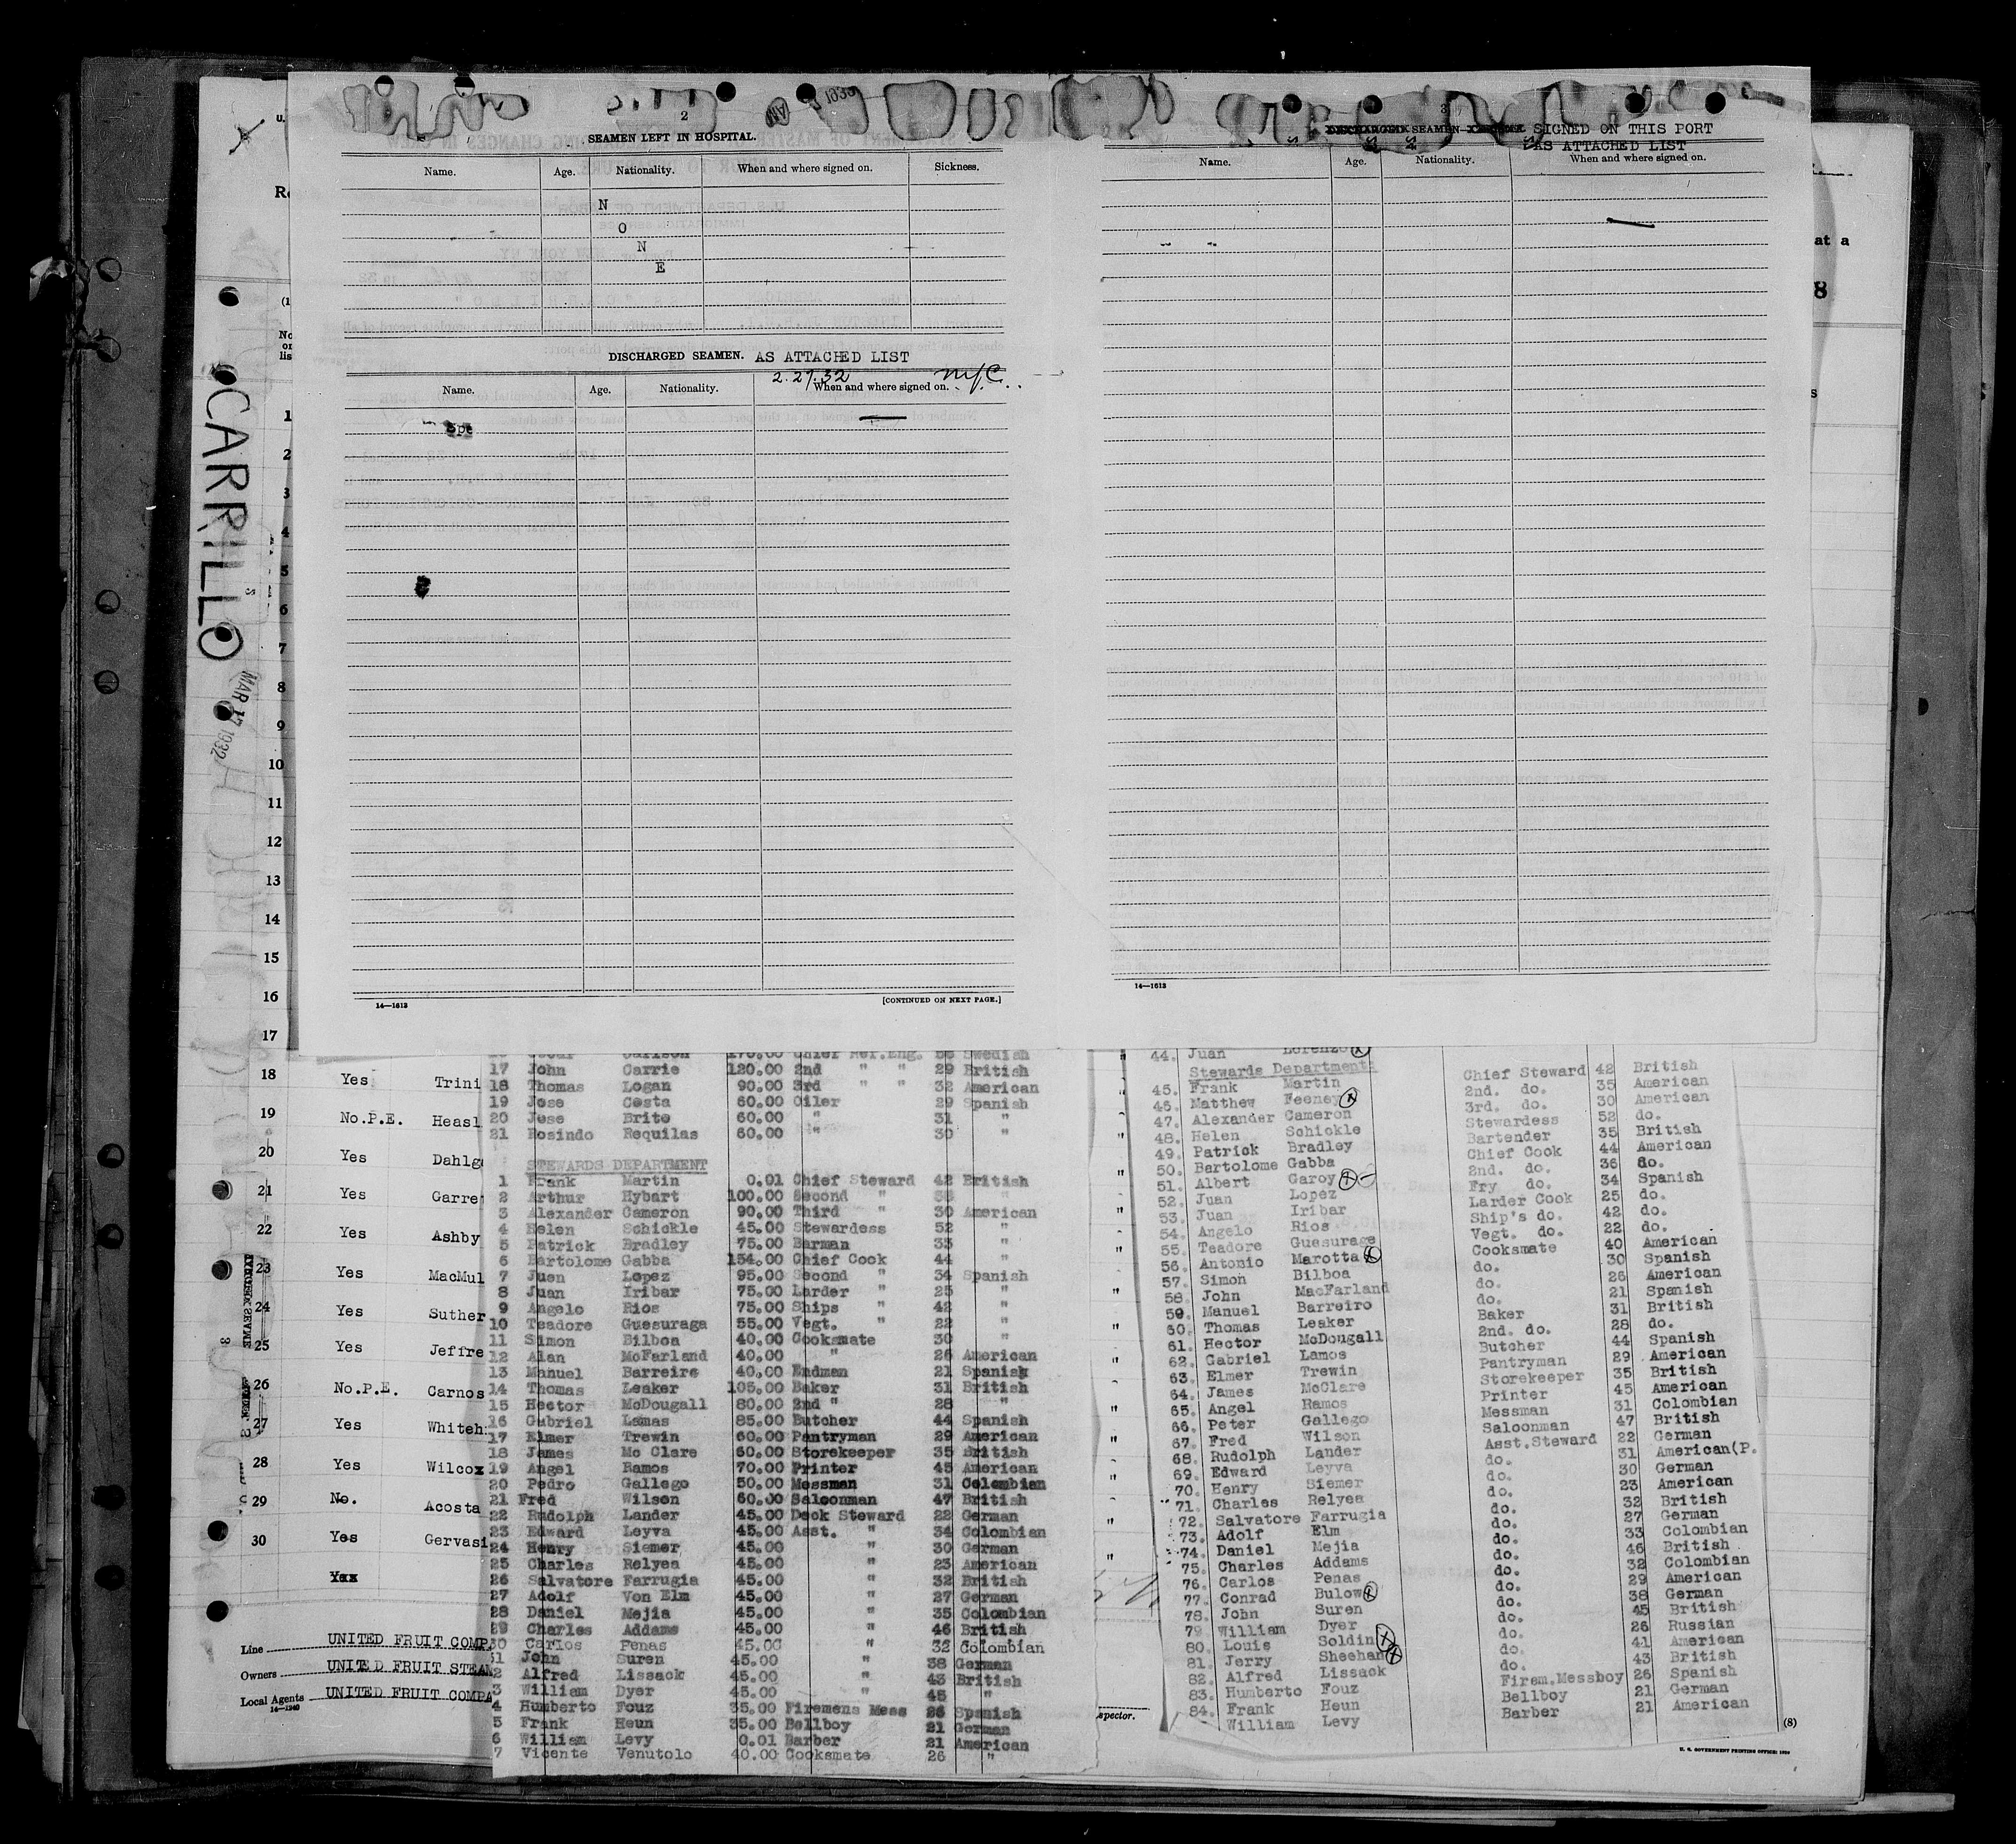 2
SEAMEN LEFT IN HOSPITAL.
Name. Age. Nationality. When and where signed on. Sickness.
N
O
N
E
DISCHARGED SEAMEN. AS ATTACHED LIST
2.27.32
Name. Age. Nationality. When and where signed on.
14—1613 [CONTINUED ON NEXT PAGE.]
3
SEAMEN SIGNED ON THIS PORT
AS ATTACHED LIST
Name. Age. Nationality. When and where signed on.
14—1613
CARRILLO
MAR 17 1932
at a
8
1
2
3
4
5
6
7
8
9
10
11
12
13
14
15
16
17
18 Yes Trini
19 No.P.E. Heasl
20 Yes Dahlg
21 Yes Garre
22 Yes Ashby
23 Yes MacMul
24 Yes Suther
25 Yes Jeffre
26 No.P.E. Carnos
27 Yes Whiteh
28 Yes Wilcox
29 No. Acosta
30 Yes Gervasi
Line UNITED FRUIT COMP
Owners UNITED FRUIT STEAM
Local Agents UNITED FRUIT COMPA
14—1240
17 John Carrie 120.00 2nd " " 29 British
18 Thomas Logan 90.00 3rd " " 32 American
19 Jose Costa 60.00 Oiler 29 Spanish
20 Jose Brito 60.00 " 31 "
21 Rosindo Requilas 60.00 " 30 "
STEWARDS DEPARTMENT
1 Frank Martin 0.01 Chief Steward 42 British
2 Arthur Hybart 100.00 Second "
3 Alexander Cameron 90.00 Third " 30 American
4 Helen Schickle 45.00 Stewardess 52 "
5 Patrick Bradley 75.00 Barman 35 "
6 Bartolome Gabba 154.00 Chief Cook 44 "
7 Juan Lopez 95.00 Second " 34 Spanish
8 Juan Iribar 75.00 Larder " 25 "
9 Angelo Rios 75.00 Ships " 42 "
10 Teadore Guesuraga 55.00 Vegt. " 22 "
11 Simon Bilboa 40.00 Cooksmate 30 "
12 Alan McFarland 40.00 " 26 American
13 Manuel Barreiro 40.00 Endman 21 Spanish
14 Thomas Leaker 105.00 Baker 31 British
15 Hector McDougall 80.00 2nd " 28 "
16 Gabriel Lamas 85.00 Butcher 44 Spanish
17 Elmer Trewin 60.00 Pantryman 29 American
18 James Mc Clare 60.00 Storekeeper 35 British
19 Angel Ramos 70.00 Printer 45 American
20 Pedro Gallego 50.00 Messman 31 Colombian
21 Fred Wilson 60.00 Saloonman 47 British
22 Rudolph Lander 45.00 Deck Steward 22 German
23 Edward Leyva 45.00 Asst. " 34 Colombian
24 Henry Siemer 45.00 " 30 German
25 Charles Relyea 45.00 " 23 American
26 Salvatore Farrugia 45.00 " 32 British
27 Adolf Von Elm 45.00 " 27 German
28 Daniel Mejia 45.00 " 35 Colombian
29 Charles Addams 45.00 " 46 British
30 Carlos Penas 45.00 " 32 Colombian
31 John Suren 45.00 " 38 German
2 Alfred Lissack 45.00 " 43 British
3 William Dyer 45.00 " 45 "
4 Humberto Fouz 35.00 Firemens Mess 26 Spanish
5 Frank Heun 35.00 Bellboy 21 German
6 William Levy 0.01 Barber 21 American
7 Vicente Venutolo 40.00 Cooksmate 26 "
44. Juan Lorenzo
Stewards Department
45. Frank Martin Chief Steward 42 British
46. Matthew Feeney 2nd. do. 35 American
47. Alexander Cameron 3rd. do. 30 American
48. Helen Schickle Stewardess 52 do.
49. Patrick Bradley Bartender 35 British
50. Bartolome Gabba Chief Cook 44 American
51. Albert Garoy 2nd. do. 36 do.
52. Juan Lopez Fry do. 34 Spanish
53. Juan Iribar Larder Cook 25 do.
54. Angelo Rios Ship's do. 42 do.
55. Teadore Guesurage Vegt. do. 22 do.
56. Antonio Marotta Cooksmate 40 American
57. Simon Bilboa do. 30 Spanish
58. John MacFarland do. 26 American
59. Manuel Barreiro do. 21 Spanish
60. Thomas Leaker Baker 31 British
61. Hector McDougall 2nd. do. 28 do.
62. Gabriel Lamos Butcher 44 Spanish
63. Elmer Trewin Pantryman 29 American
64. James McClare Storekeeper 35 British
65. Angel Ramos Printer 45 American
66. Peter Gallego Messman 31 Colombian
67. Fred Wilson Saloonman 47 British
68. Rudolph Lander Asst.Steward 22 German
69. Edward Leyva do. 31 American(P.
70. Henry Siemer do. 30 German
71. Charles Relyea do. 23 American
72. Salvatore Farrugia do. 32 British
73. Adolf Elm do. 27 German
74. Daniel Mejia do. 33 Colombian
75. Charles Addams do. 46 British
76. Carlos Penas do. 32 Colombian
77. Conrad Bulow do. 29 American
78. John Suren do. 38 German
79 William Dyer do. 45 British
80. Louis Soldin do. 26 Russian
81. Jerry Sheehan do. 41 American
82. Alfred Lissack do. 43 British
83. Humberto Fouz Firem.Messboy 26 Spanish
84. Frank Heun Bellboy 21 German
William Levy Barber 21 American
spector.
(8)
U. S. GOVERNMENT PRINTING OFFICE: 1930